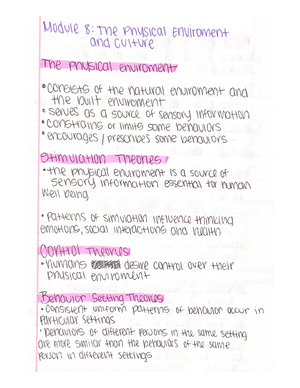 Module 8: The Physical Enviroment
and Culture
The Physical enviroment
• consists of the natural enviroment and
the built enviroment
• serves as a source of sensory information
• constrains or limits some behaviors
• encourages/prescribes some behaviors
Stimulation Theories
• the physical enviroment is a source of
sensory information essential for human
well being
• Patterns of stimulation influence thinking
emotions, social interactions and health
Control Theories
• Humans desire control over their
physical enviroment
Behavior Setting Theories
• Consistent uniform patterns of behavior occur in
Particular settings
• Behaviors of different persons in the same setting
are more similar than the behaviors of the same
Person in different settings